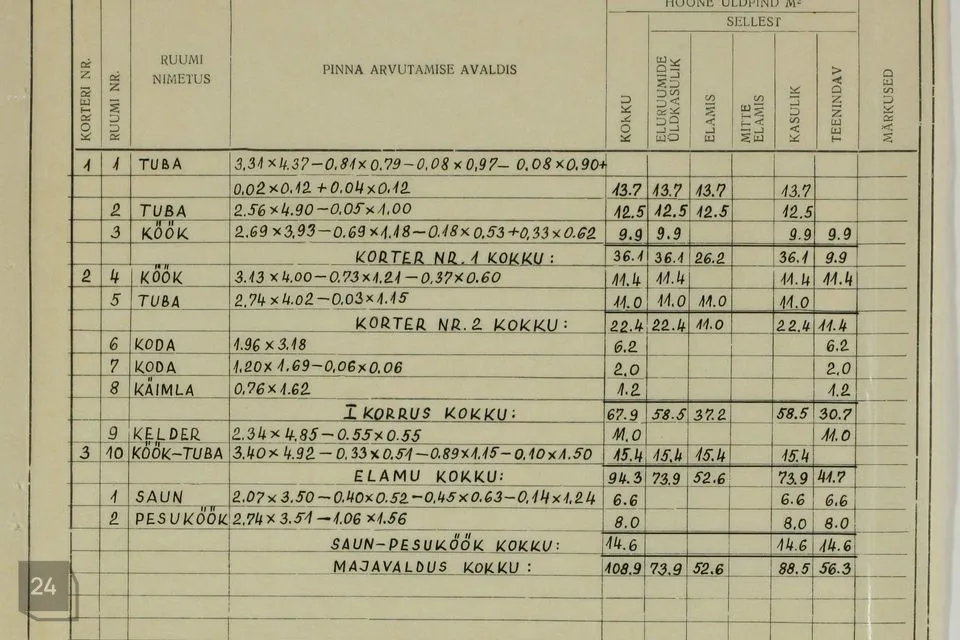 HOONE ÜLDPIND M²
SELLEST
KORTERI NR. RUUMI NR. RUUMI NIMETUS PINNA ARVUTAMISE AVALDIS KOKKU ELURUUMIDE ÜLDKASULIK ELAMIS MITTE ELAMIS KASULIK TEENINDAV MÄRKUSED
1 1 TUBA 3,31×4.37−0.81×0.79−0,08×0,97−0.08×0.90+
0,02×0.12+0.04×0.12 13.7 13.7 13.7 13.7
2 TUBA 2.56×4.90−0,05×1,00 12.5 12.5 12.5 12.5
3 KÖÖK 2.69×3,93−0.69×1.18−0.18×0,53+0,33×0.62 9.9 9.9 9.9 9.9
KORTER NR. 1 KOKKU: 36.1 36.1 26.2 36.1 9.9
2 4 KÖÖK 3.13×4.00−0.73×1.21−0,37×0.60 11.4 11.4 11.4 11.4
5 TUBA 2,74×4.02−0,03×1.15 11.0 11.0 11.0 11.0
KORTER NR. 2 KOKKU: 22.4 22.4 11.0 22.4 11.4
6 KODA 1.96×3.18 6.2 6.2
7 KODA 1,20×1,69−0,06×0,06 2,0 2,0
8 KÄIMLA 0,76×1.62 1.2 1.2
I KORRUS KOKKU: 67.9 58.5 37.2 58.5 30.7
9 KELDER 2.34×4,85−0.55×0.55 11,0 11.0
3 10 KÖÖK-TUBA 3,40×4.92−0,33×0,51−0.89×1,15−0,10×1.50 15.4 15.4 15.4 15.4
ELAMU KOKKU: 94.3 73.9 52.6 73.9 41.7
1 SAUN 2.07×3.50−0,40×0.52−0,45×0.63−0,14×1,24 6.6 6.6 6.6
2 PESUKÖÖK 2,74×3.51−1.06×1.56 8.0 8,0 8.0
SAUN-PESUKÖÖK KOKKU: 14.6 14.6 14.6
MAJAVALDUS KOKKU: 108.9 73.9 52.6 88.5 56.3
24